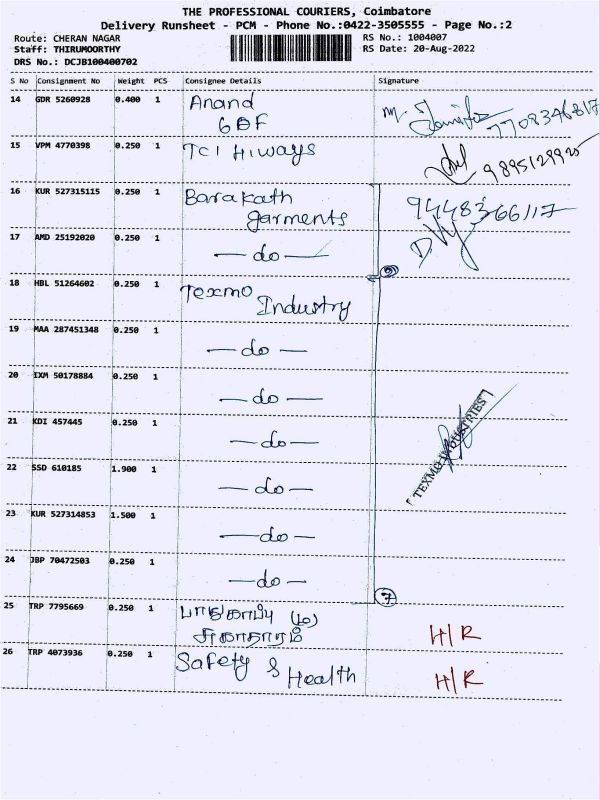 THE PROFESSIONAL COURIERS, Coimbatore
Delivery Runsheet - PCM - Phone No.:0422-3505555 - Page No.:2
Route: CHERAN NAGAR RS No.: 1004007
Staff: THIRUMOORTHY RS Date: 20-Aug-2022
DRS No.: DCJB100400702
S No Consignment No Weight PCS Consignee Details Signature
14 GDR 5260928 0.400 1 Anand
GDF 7708346817
15 VPM 4770398 0.250 1 TCI Hiways 9895129925
16 KUR 527315115 0.250 1 Barakath 9448366117
garments
17 AMD 25192020 0.250 1 — do —
18 HBL 51264602 0.250 1 Texmo
Industry
19 MAA 287451348 0.250 1 — do —
20 IXM 50178884 0.250 1 — do —
21 KDI 457445 0.250 1 — do —
TEXMO INDUSTRIES
22 SSD 610185 1.900 1 — do —
23 KUR 527314853 1.500 1 — do —
24 JBP 70472503 0.250 1 — do —
7
25 TRP 7795669 0.250 1 பாதுகாப்பு (ம)
சுகாதாரம் H/R
26 TRP 4073936 0.250 1 Safety &
Health H/R